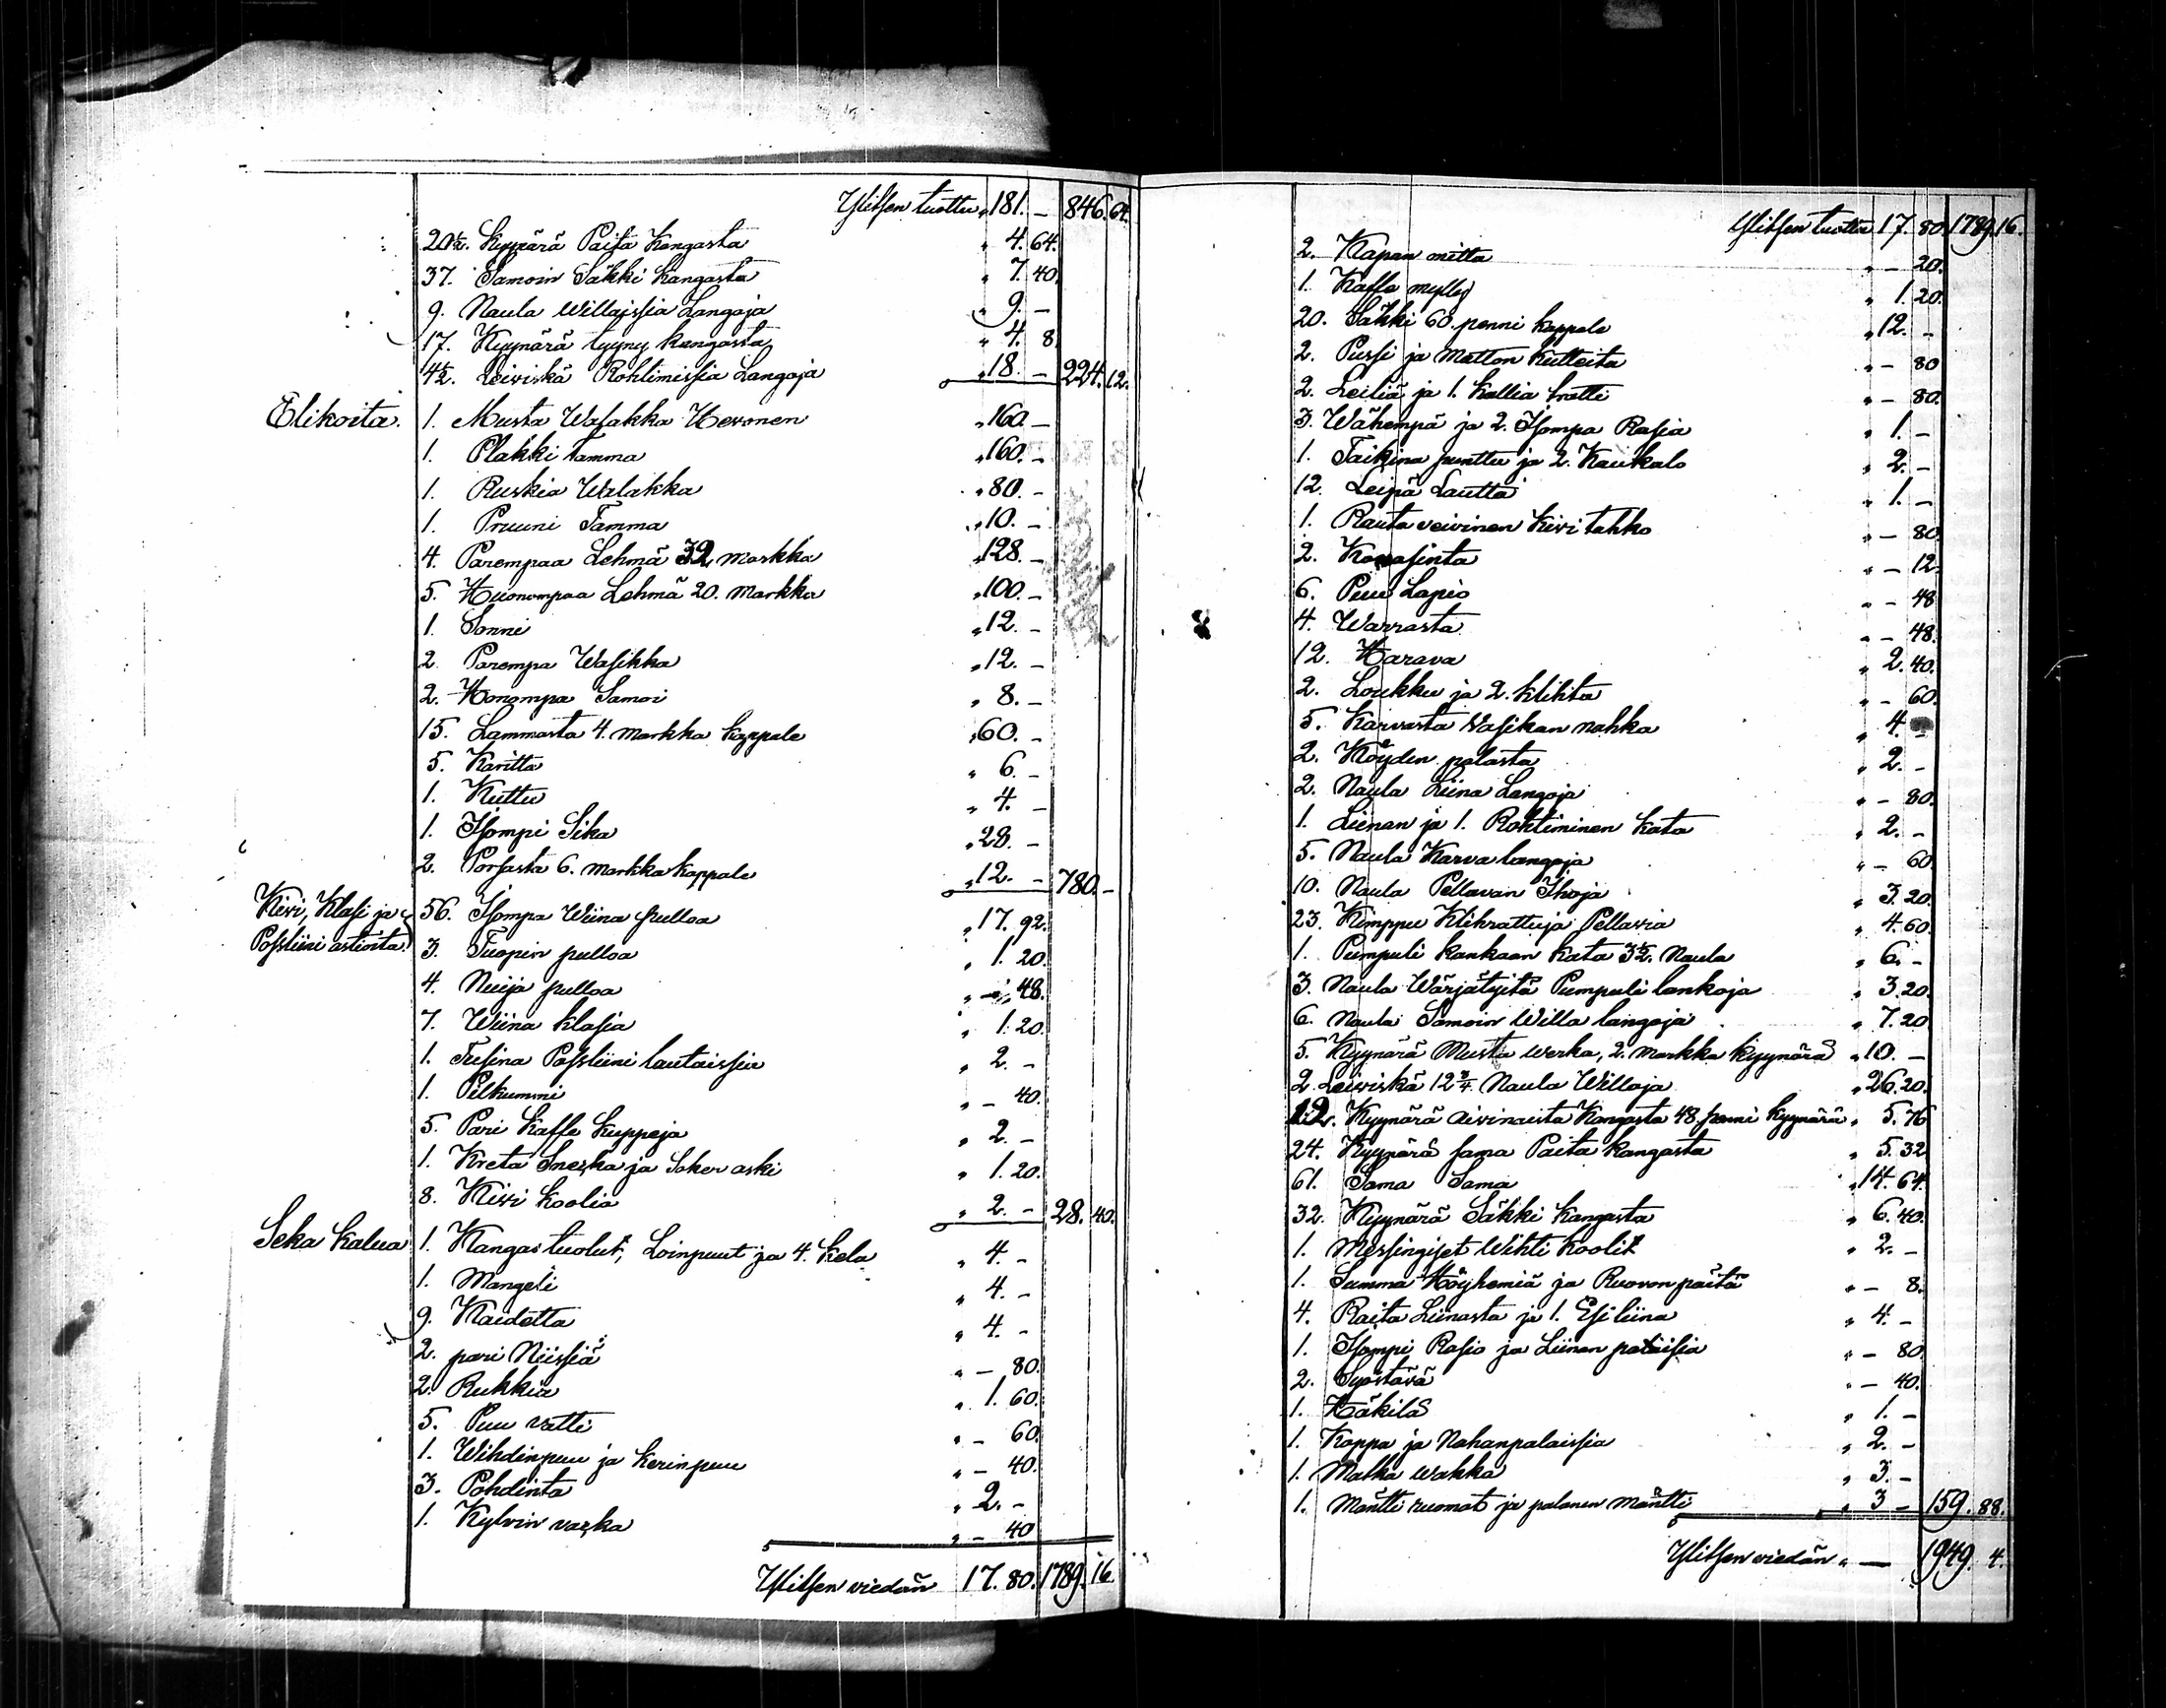 Ylitsen tuottu „ 181. – 846. 64.
20½. Kyynärä Paita Kangasta „ 4. 64.
37. Samoin Säkki Kangasta „ 7. 40.
9. Naula Willaissia Langoja „ 9. –
17. Kyynärä tyyny kangasta „ 4. 8.
4½. Leiviskä Rohtimissia Langoja „ 18. – 224. 12.
Elikoita. 1. Musta Walakka Hevonen „ 160. –
1. Plakki Tamma „ 160. –
1. Ruskia Walakka „ 80. –
1. Pruuni Tamma „ 10. –
4. Parempaa Lehmä 32 markka „ 128. –
5. Huonompaa Lehmä 20. markka „ 100. –
1. Sonni „ 12. –
2. Parempa Wasikka „ 12. –
2. Honompa Samoi „ 8. –
15. Lammasta 4. markka kappale „ 60. –
5. Karitta „ 6. –
1. Kuttu „ 4. –
1. Isompi Sika „ 28. –
2. Porsasta 6. markka kappale „ 12. – 780. –
Kivi, Klasi ja 56. Isompa Wiina pulloa „ 17. 92.
Posliini astioita. 3. Tuopin pulloa „ 1. 20.
4. Neija pulloa „ – 48.
7. Wiina klasia „ 1. 20.
1. Tusina Posliini lautaissia „ 2. –
1. Pilkummi „ – 40.
5. Pari Kaffe Kuppeja „ 2. –
1. Kreta Sneska ja Soker aski „ 1. 20.
8. Kivi koolia „ 2. – 28. 40.
Seka Kalua 1. Kangas tuolut, Loinpuut ja 4. Kela „ 4. –
1. Mangeli „ 4. –
9. Kaidetta „ 4. –
2. pari Niissiä „ – 80.
2. Rukkia „ 1. 60.
5. Puu vatti „ – 60.
1. Wihdinpuu ja Kerinpuu „ – 40.
3. Pohdinta „ 2. –
1. Kylvin vaska „ – 40
Ylitsen viedän 17. 80. 1789. 16.
Ylitsen tuottu 17. 80. 1789. 16.
2. Kapan mitta „ – 20.
1. Kaffe mylly „ 1. 20.
20. Säkki 60. penni kappale „ 12. –
2. Pussi ja Matton Kutteita „ – 80
2. Leiliä ja 1. Kallia tratti „ – 80.
3. Wähempä ja 2. Isompa Rasia „ 1. –
1. Taikina punttu ja 2. Kaukalo „ 2. –
12. Leipä Lautta „ 1. –
1. Rauta veivinen Kivi tahko „ – 80.
2. Kovasinta „ – 12.
6. Puu Lapio „ – 48
4. Warrasta „ – 48.
12. Harava „ 2. 40.
2. Loukku ja 2. klihta „ – 60.
5. Karvasta Wasikan nahka „ 4. –
2. Köyden palasta „ 2. –
2. Naula Liina Langoja „ – 80.
1. Liinan ja 1. Rohtiminen kata „ 2. –
5. Naula Karva langoja „ – 60
10. Naula Pellavan Ihoja „ 3. 20.
23. Kimppu Klihrattuja Pellavia „ 4. 60.
1. Pumpuli kankaan kata 3½. Naula „ 6. –
3. Naula Wärjätyitä Pumpuli lankoja „ 3. 20.
6. Naula Samoin Willa langoja „ 7. 20
5. Kyynärä Musta werka, 2. markka kyynärä „ 10. –
2. Leiviskä 12¾. Naula Willoja „ 26. 20.
12. Kyynärä Aivinaista Kangasta 48. penni kyynärä „ 5. 76
24. Kyynärä sama Paita kangasta „ 5. 32
61. Sama Sama „ 14. 64.
32. Kyynärä Säkki kangasta „ 6. 40.
1. Messingiset Wihti koolit „ 2. –
1. Summa Höyhemiä ja Ruovon päitä „ – 8.
4. Raita Liinasta ja 1. Esiliina „ 4. –
1. Isompi Rasia ja Liinan palaisia „ – 80.
2. Syöstävä „ – 40.
1. Häkilä „ 1. –
1. Koppa ja Nahanpalaissia „ 2. –
1. Matka wakka „ 3. –
1. Mäntti ruomat ja palanen mäntti „ 3 – 159. 88.
Ylitsen viedän „ — 1949. 4.